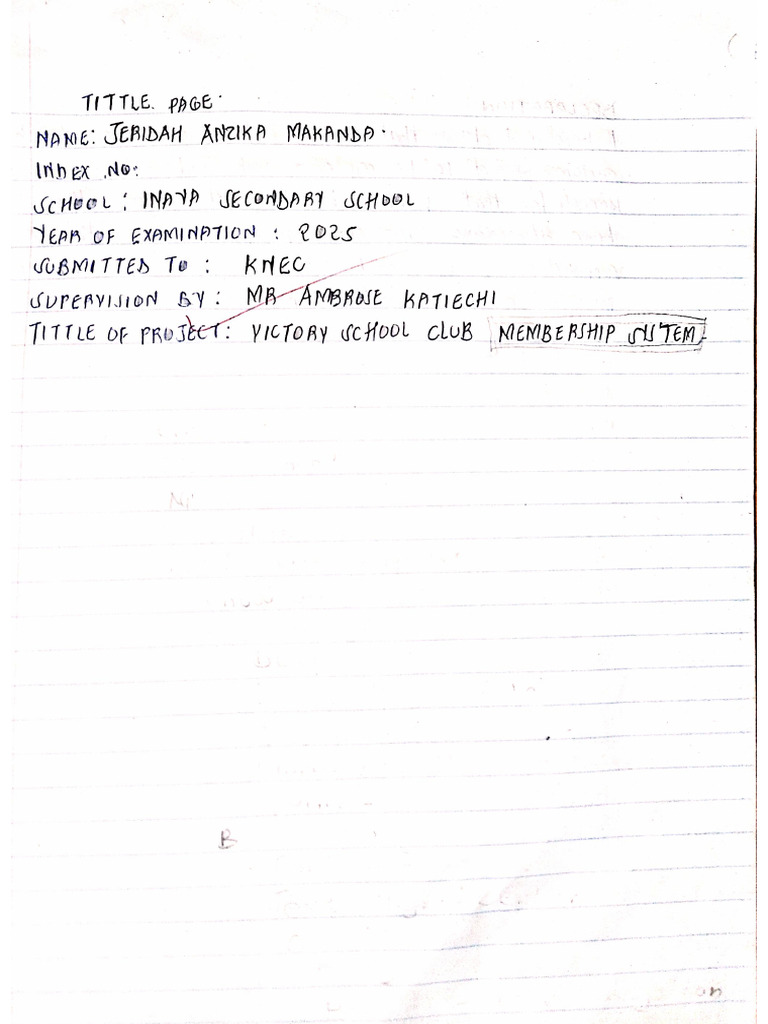 TITTLE PAGE.
NAME: JERIDAH ANZIKA MAKANDA.
INDEX NO:
SCHOOL: INAYA SECONDARY SCHOOL
YEAR OF EXAMINATION : 2025
SUBMITTED TO : KNEC
SUPERVISION BY: MR AMBROSE KATIECHI
TITTLE OF PROJECT: VICTORY SCHOOL CLUB MEMBERSHIP SYSTEM.
B